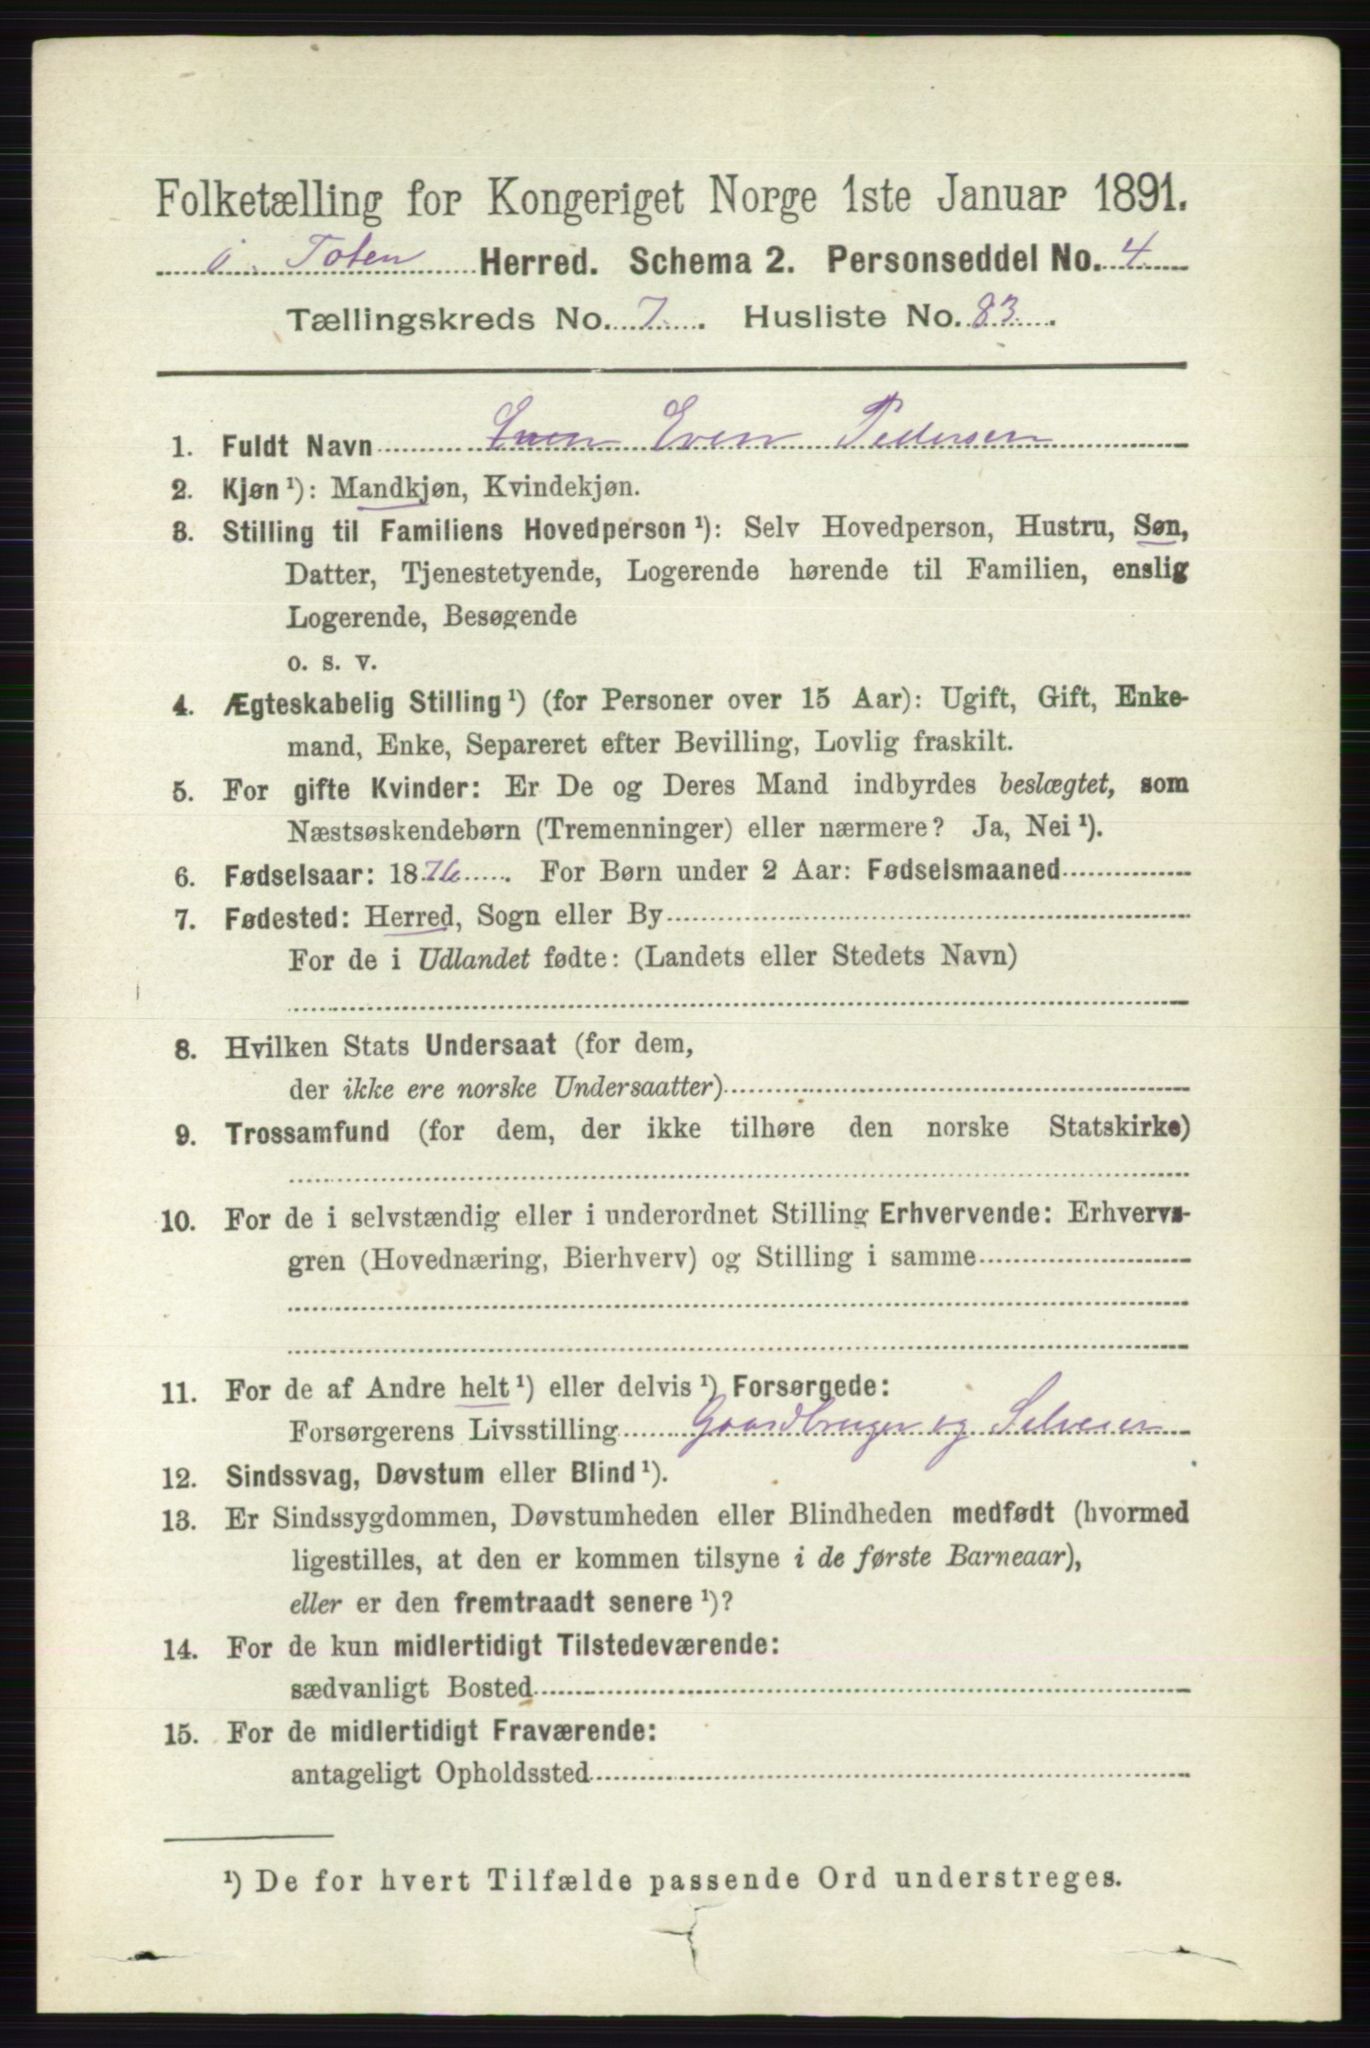 Folketælling for Kongeriget Norge 1ste Januar 1891.
Ø. Toten Herred. Schema 2. Personseddel No. 4
Tællingskreds No. 7. Husliste No. 83.
1. Fuldt Navn Even Even Pedersen
2. Kjøn ¹): Mandkjøn, Kvindekjøn.
3. Stilling til Familiens Hovedperson ¹): Selv Hovedperson, Hustru, Søn,
Datter, Tjenestetyende, Logerende hørende til Familien, enslig
Logerende, Besøgende
o. s. v.
4. Ægteskabelig Stilling ¹) (for Personer over 15 Aar): Ugift, Gift, Enke-
mand, Enke, Separeret efter Bevilling, Lovlig fraskilt.
5. For gifte Kvinder: Er De og Deres Mand indbyrdes beslægtet, som
Næstsøskendebørn (Tremenninger) eller nærmere? Ja, Nei ¹).
6. Fødselsaar: 1876. For Børn under 2 Aar: Fødselsmaaned
7. Fødested: Herred, Sogn eller By
For de i Udlandet fødte: (Landets eller Stedets Navn)
8. Hvilken Stats Undersaat (for dem,
der ikke ere norske Undersaatter)
9. Trossamfund (for dem, der ikke tilhøre den norske Statskirke)
10. For de i selvstændig eller i underordnet Stilling Erhvervende: Erhvervs-
gren (Hovednæring, Bierhverv) og Stilling i samme
11. For de af Andre helt ¹) eller delvis ¹) Forsørgede:
Forsørgerens Livsstilling Gaardbruger og Selveier
12. Sindssvag, Døvstum eller Blind ¹).
13. Er Sindssygdommen, Døvstumheden eller Blindheden medfødt (hvormed
ligestilles, at den er kommen tilsyne i de første Barneaar),
eller er den fremtraadt senere ¹)?
14. For de kun midlertidigt Tilstedeværende:
sædvanligt Bosted
15. For de midlertidigt Fraværende:
antageligt Opholdssted
¹) De for hvert Tilfælde passende Ord understreges.